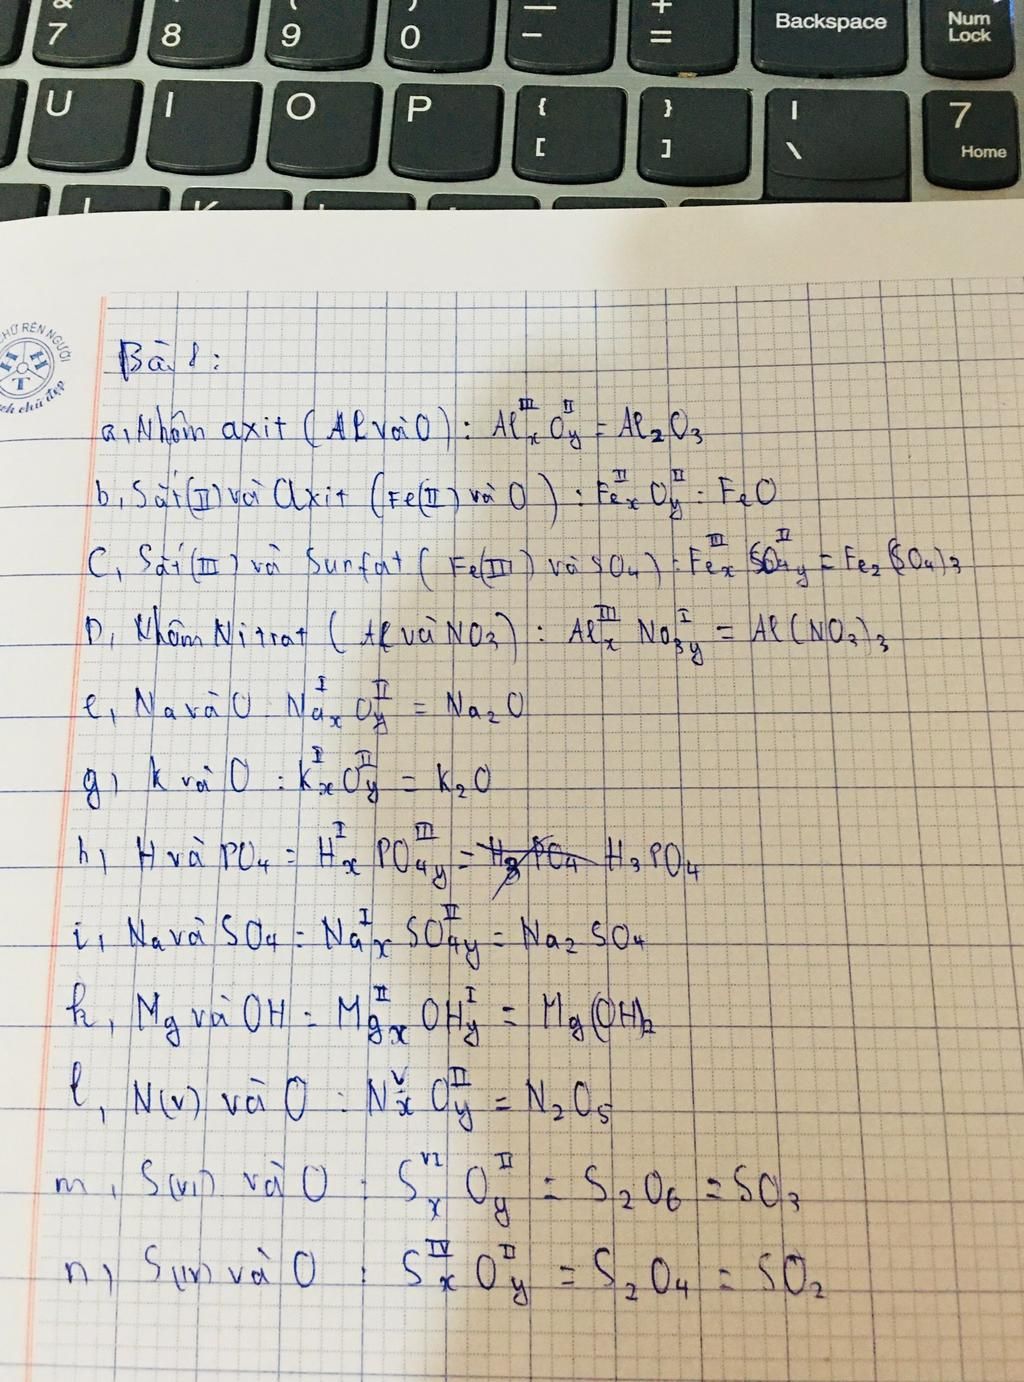 & 7 8 9 ) 0 — - + = Backspace Num Lock
U I O P { [ } ] | \ 7 Home
CHỮ RÈN NGƯỜI
H H T
ch chữ đẹp
Bài 8:
a, Nhôm axit (Al và O): Al^III_x O^II_y = Al₂O₃
b, Sắt(II) và axit (Fe(II) và O): Fe^II_x O^II_y : FeO
C, Sắt(III) và Sunfat (Fe(III) và SO₄): Fe^III_x SO₄^II_y = Fe₂(SO₄)₃
D, Nhôm Nitrat (Al và NO₃): Al^III_x NO₃^I_y = Al(NO₃)₃
e, Na và O: Na^I_x O^II_y = Na₂O
g, K và O: K^I_x O^II_y = K₂O
h, H và PO₄ = H^I_x PO₄^III_y = H₃PO₄ H₃PO₄
i, Na và SO₄ = Na^I_x SO₄^II_y = Na₂SO₄
k, Mg và OH = Mg^II_x OH^I_y = Mg(OH)₂
l, N(V) và O: N^V_x O^II_y = N₂O₅
m, S(VI) và O: S^VI_x O^II_y = S₂O₆ = SO₃
n, S(IV) và O: S^IV_x O^II_y = S₂O₄ = SO₂